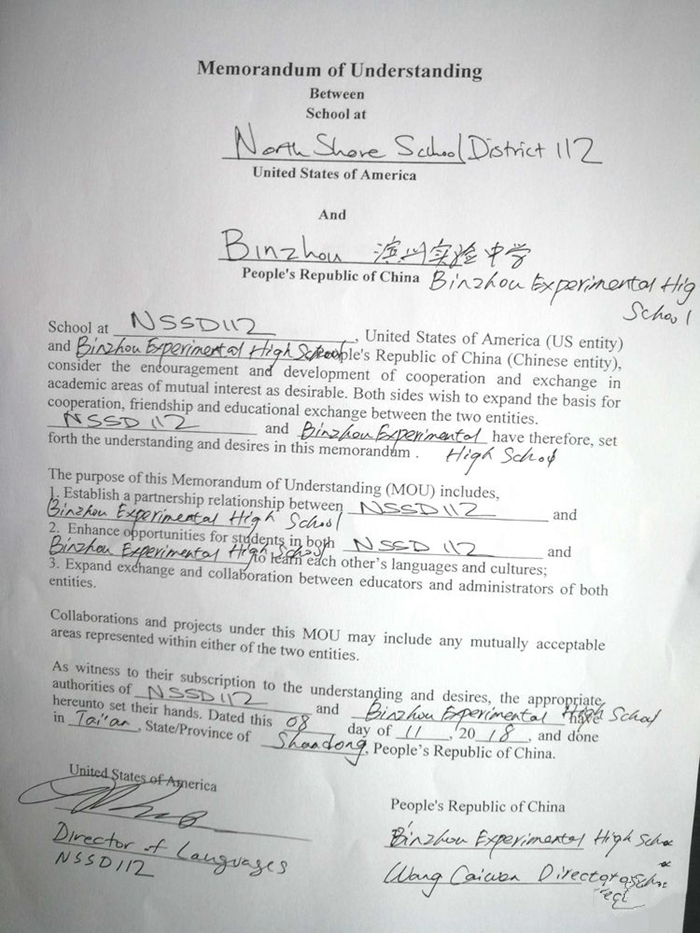 Memorandum of Understanding
Between
School at
North Shore School District 112
United States of America
And
Binzhou 滨州实验中学
People's Republic of China Binzhou Experimental Hig
School
School at NSSD112, United States of America (US entity)
and Binzhou Experimental High School People's Republic of China (Chinese entity),
consider the encouragement and development of cooperation and exchange in
academic areas of mutual interest as desirable. Both sides wish to expand the basis for
cooperation, friendship and educational exchange between the two entities.
NSSD 112 and Binzhou Experimental have therefore, set
forth the understanding and desires in this memorandum. High School
The purpose of this Memorandum of Understanding (MOU) includes,
1. Establish a partnership relationship between NSSD112 and
Binzhou Experimental High School
2. Enhance opportunities for students in both NSSD 112 and
Binzhou Experimental High School to learn each other's languages and cultures;
3. Expand exchange and collaboration between educators and administrators of both
entities.
Collaborations and projects under this MOU may include any mutually acceptable
areas represented within either of the two entities.
As witness to their subscription to the understanding and desires, the appropriate
authorities of NSSD112 and Binzhou Experimental High School have
hereunto set their hands. Dated this 08 day of 11, 2018, and done
in Tai'an, State/Province of Shandong, People's Republic of China.
United States of America
Director of Languages
NSSD112
People's Republic of China
Binzhou Experimental High Scho
Wang Caiwen Director of